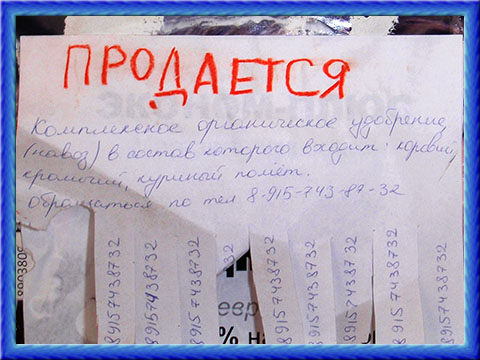 ПРОДАЕТСЯ
Комплексное органическое удобрение
(навоз) в состав которого входит: коровий,
кроличий, куриный помёт.
обращаться по тел 8-915-743-87-32
89157438732
89157438732
89157438732
32
89157438732
89157438732
89157438732
89157438732
89157438732
евр
% на